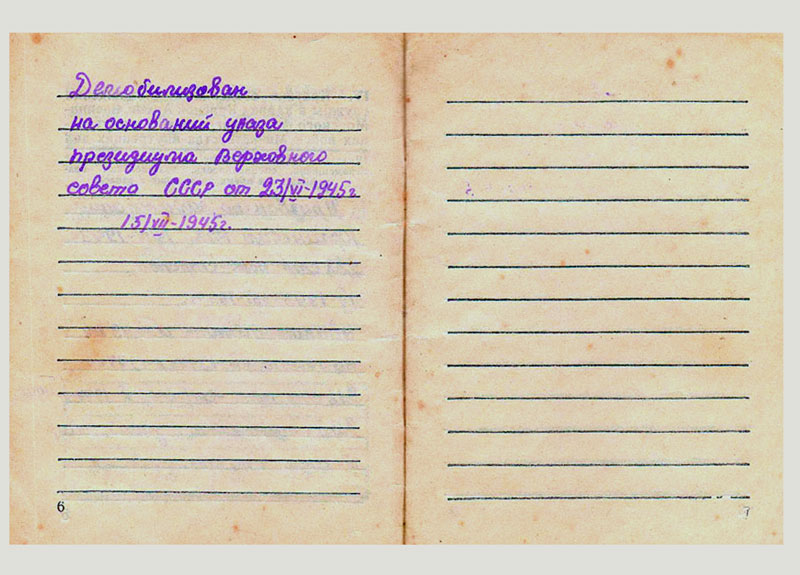 Демобилизован
на оснований указа
президиума Верховного
совета СССР от 23/VI-1945г
15/VII-1945г.
6
7